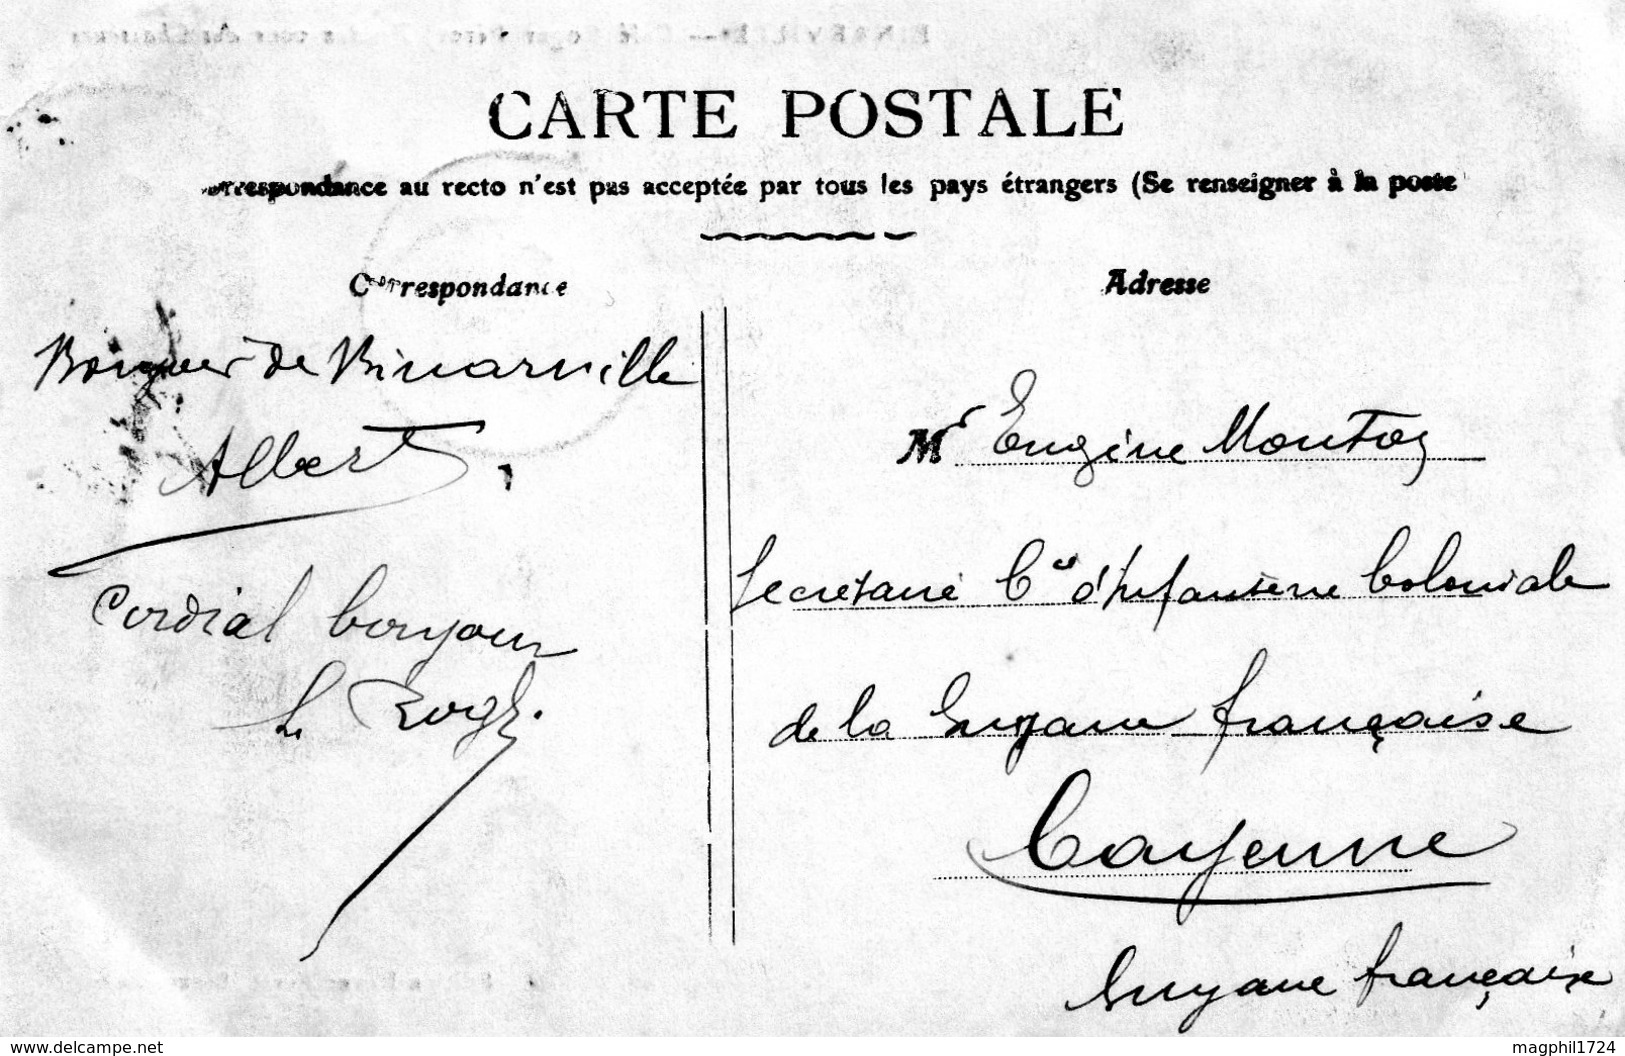 CARTE POSTALE
orrespondance au recto n'est pas acceptée par tous les pays étrangers (Se renseigner à la poste
Correspondance
Adresse
Bonjour de Binarville
Albert
Cordial bonjour
Mr Eugène Montroy
Secrétaire Cie d'Infanterie Coloniale
de la Guyane française
Cayenne
Guyane française
www.delcampe.net
magphil1724